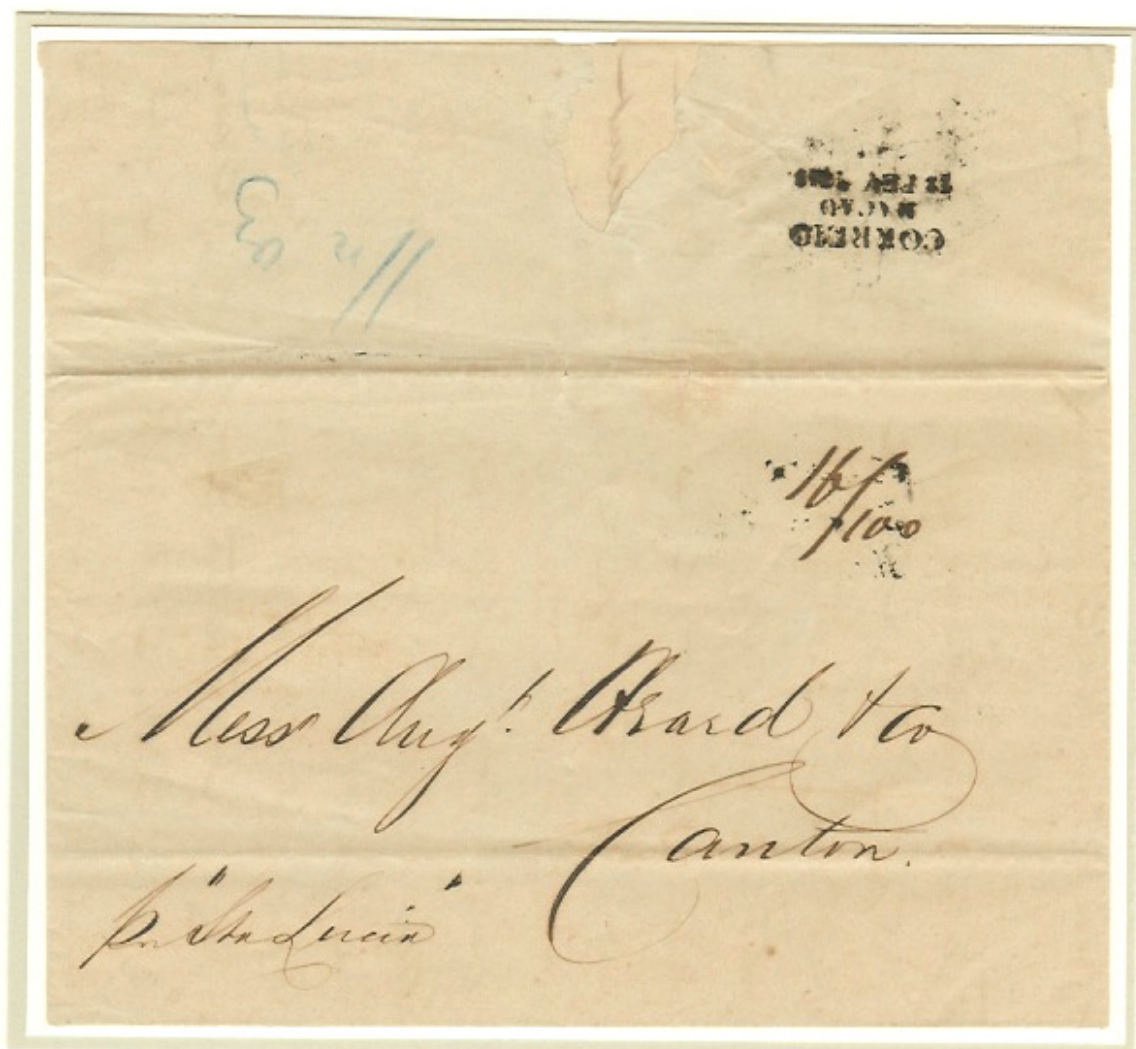 CORREIO
MACAO
16/100
Mess Augt. Heard & Co
Canton.
pr "Sta Lucia"